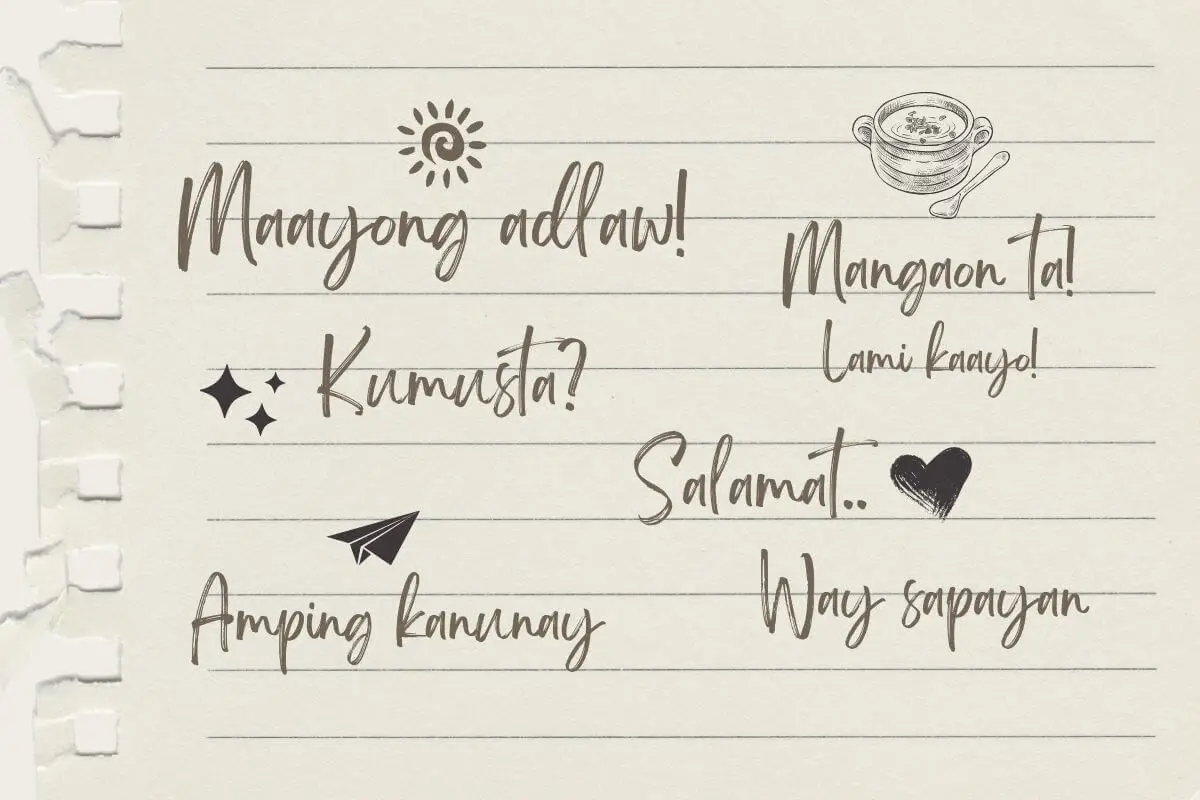 Maayong adlaw!
Mangaon ta!
Lami kaayo!
Kumusta?
Salamat..
Amping kanunay
Way sapayan